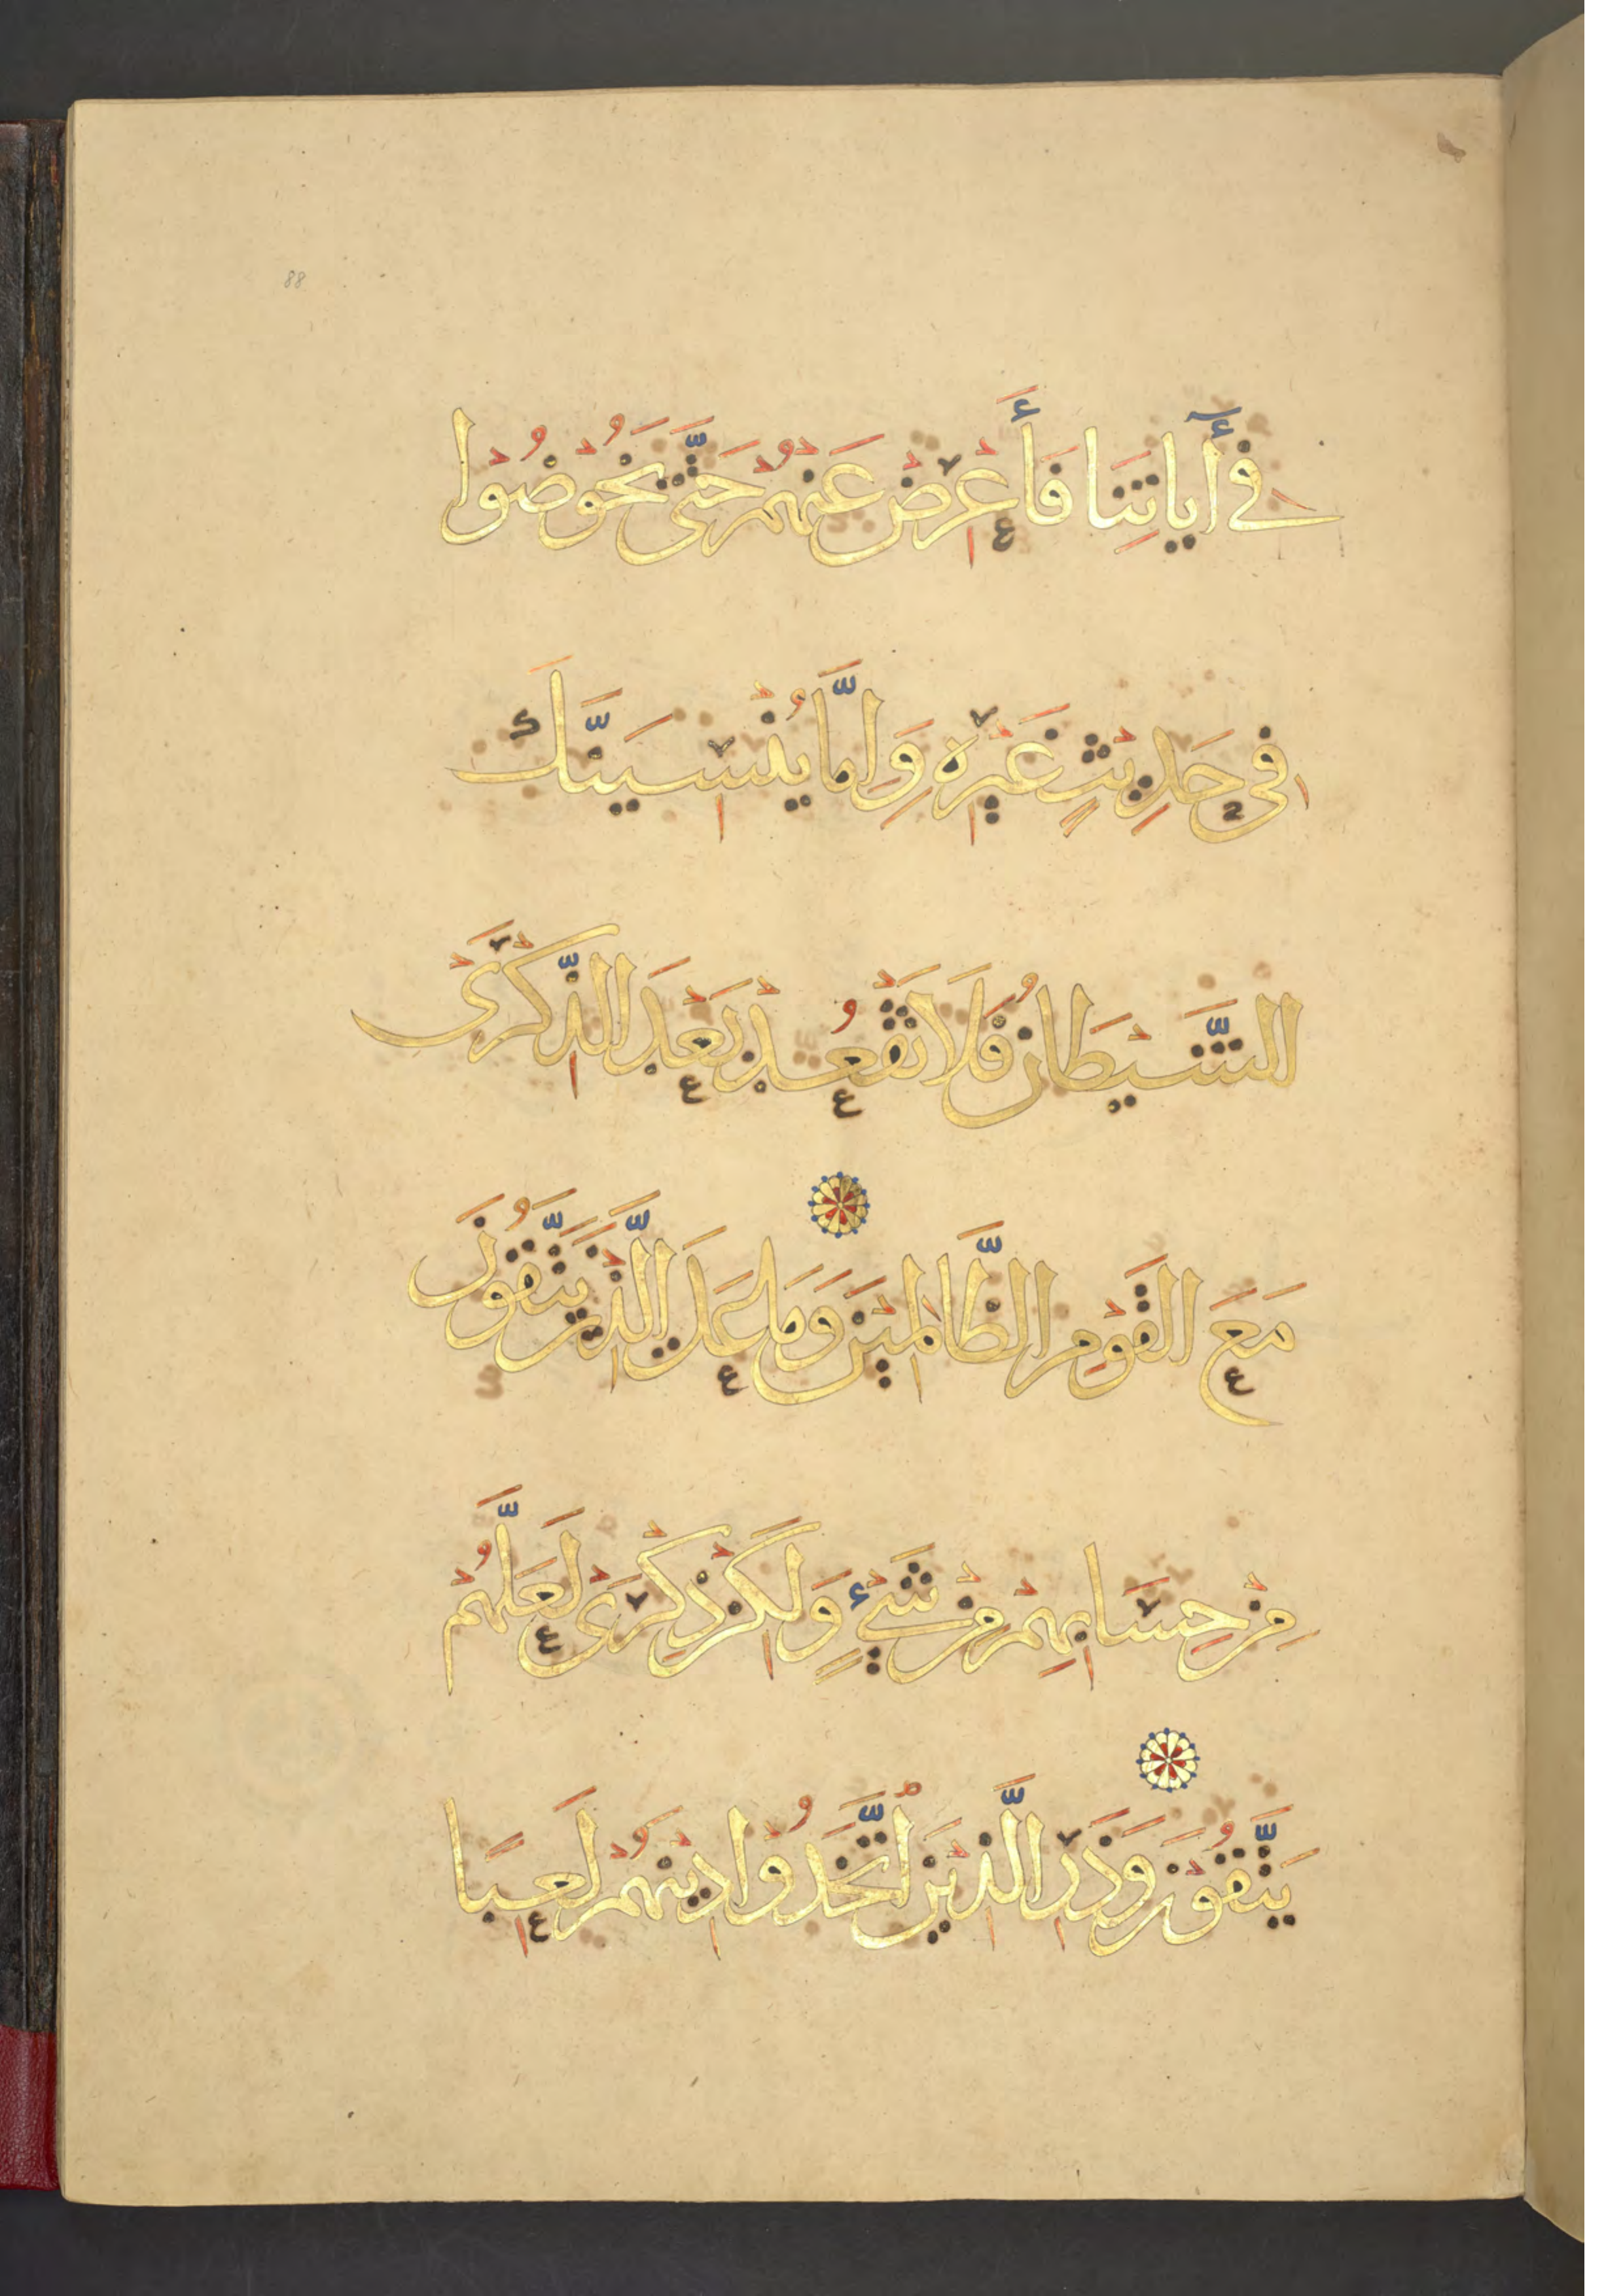 88
فِي آيَاتِنَا فَأَعْرِضْ عَنْهُمْ حَتَّى يَخُوضُوا
فِي حَدِيثٍ غَيْرِهِ وَإِمَّا يُنْسِيَنَّكَ
الشَّيْطَانُ فَلَا تَقْعُدْ بَعْدَ الذِّكْرَى
مَعَ الْقَوْمِ الظَّالِمِينَ وَمَا عَلَى الَّذِينَ يَتَّقُونَ
مِنْ حِسَابِهِمْ مِنْ شَيْءٍ وَلَكِنْ ذِكْرَى لَعَلَّهُمْ
يَتَّقُونَ وَذَرِ الَّذِينَ اتَّخَذُوا دِينَهُمْ لَعِبًا